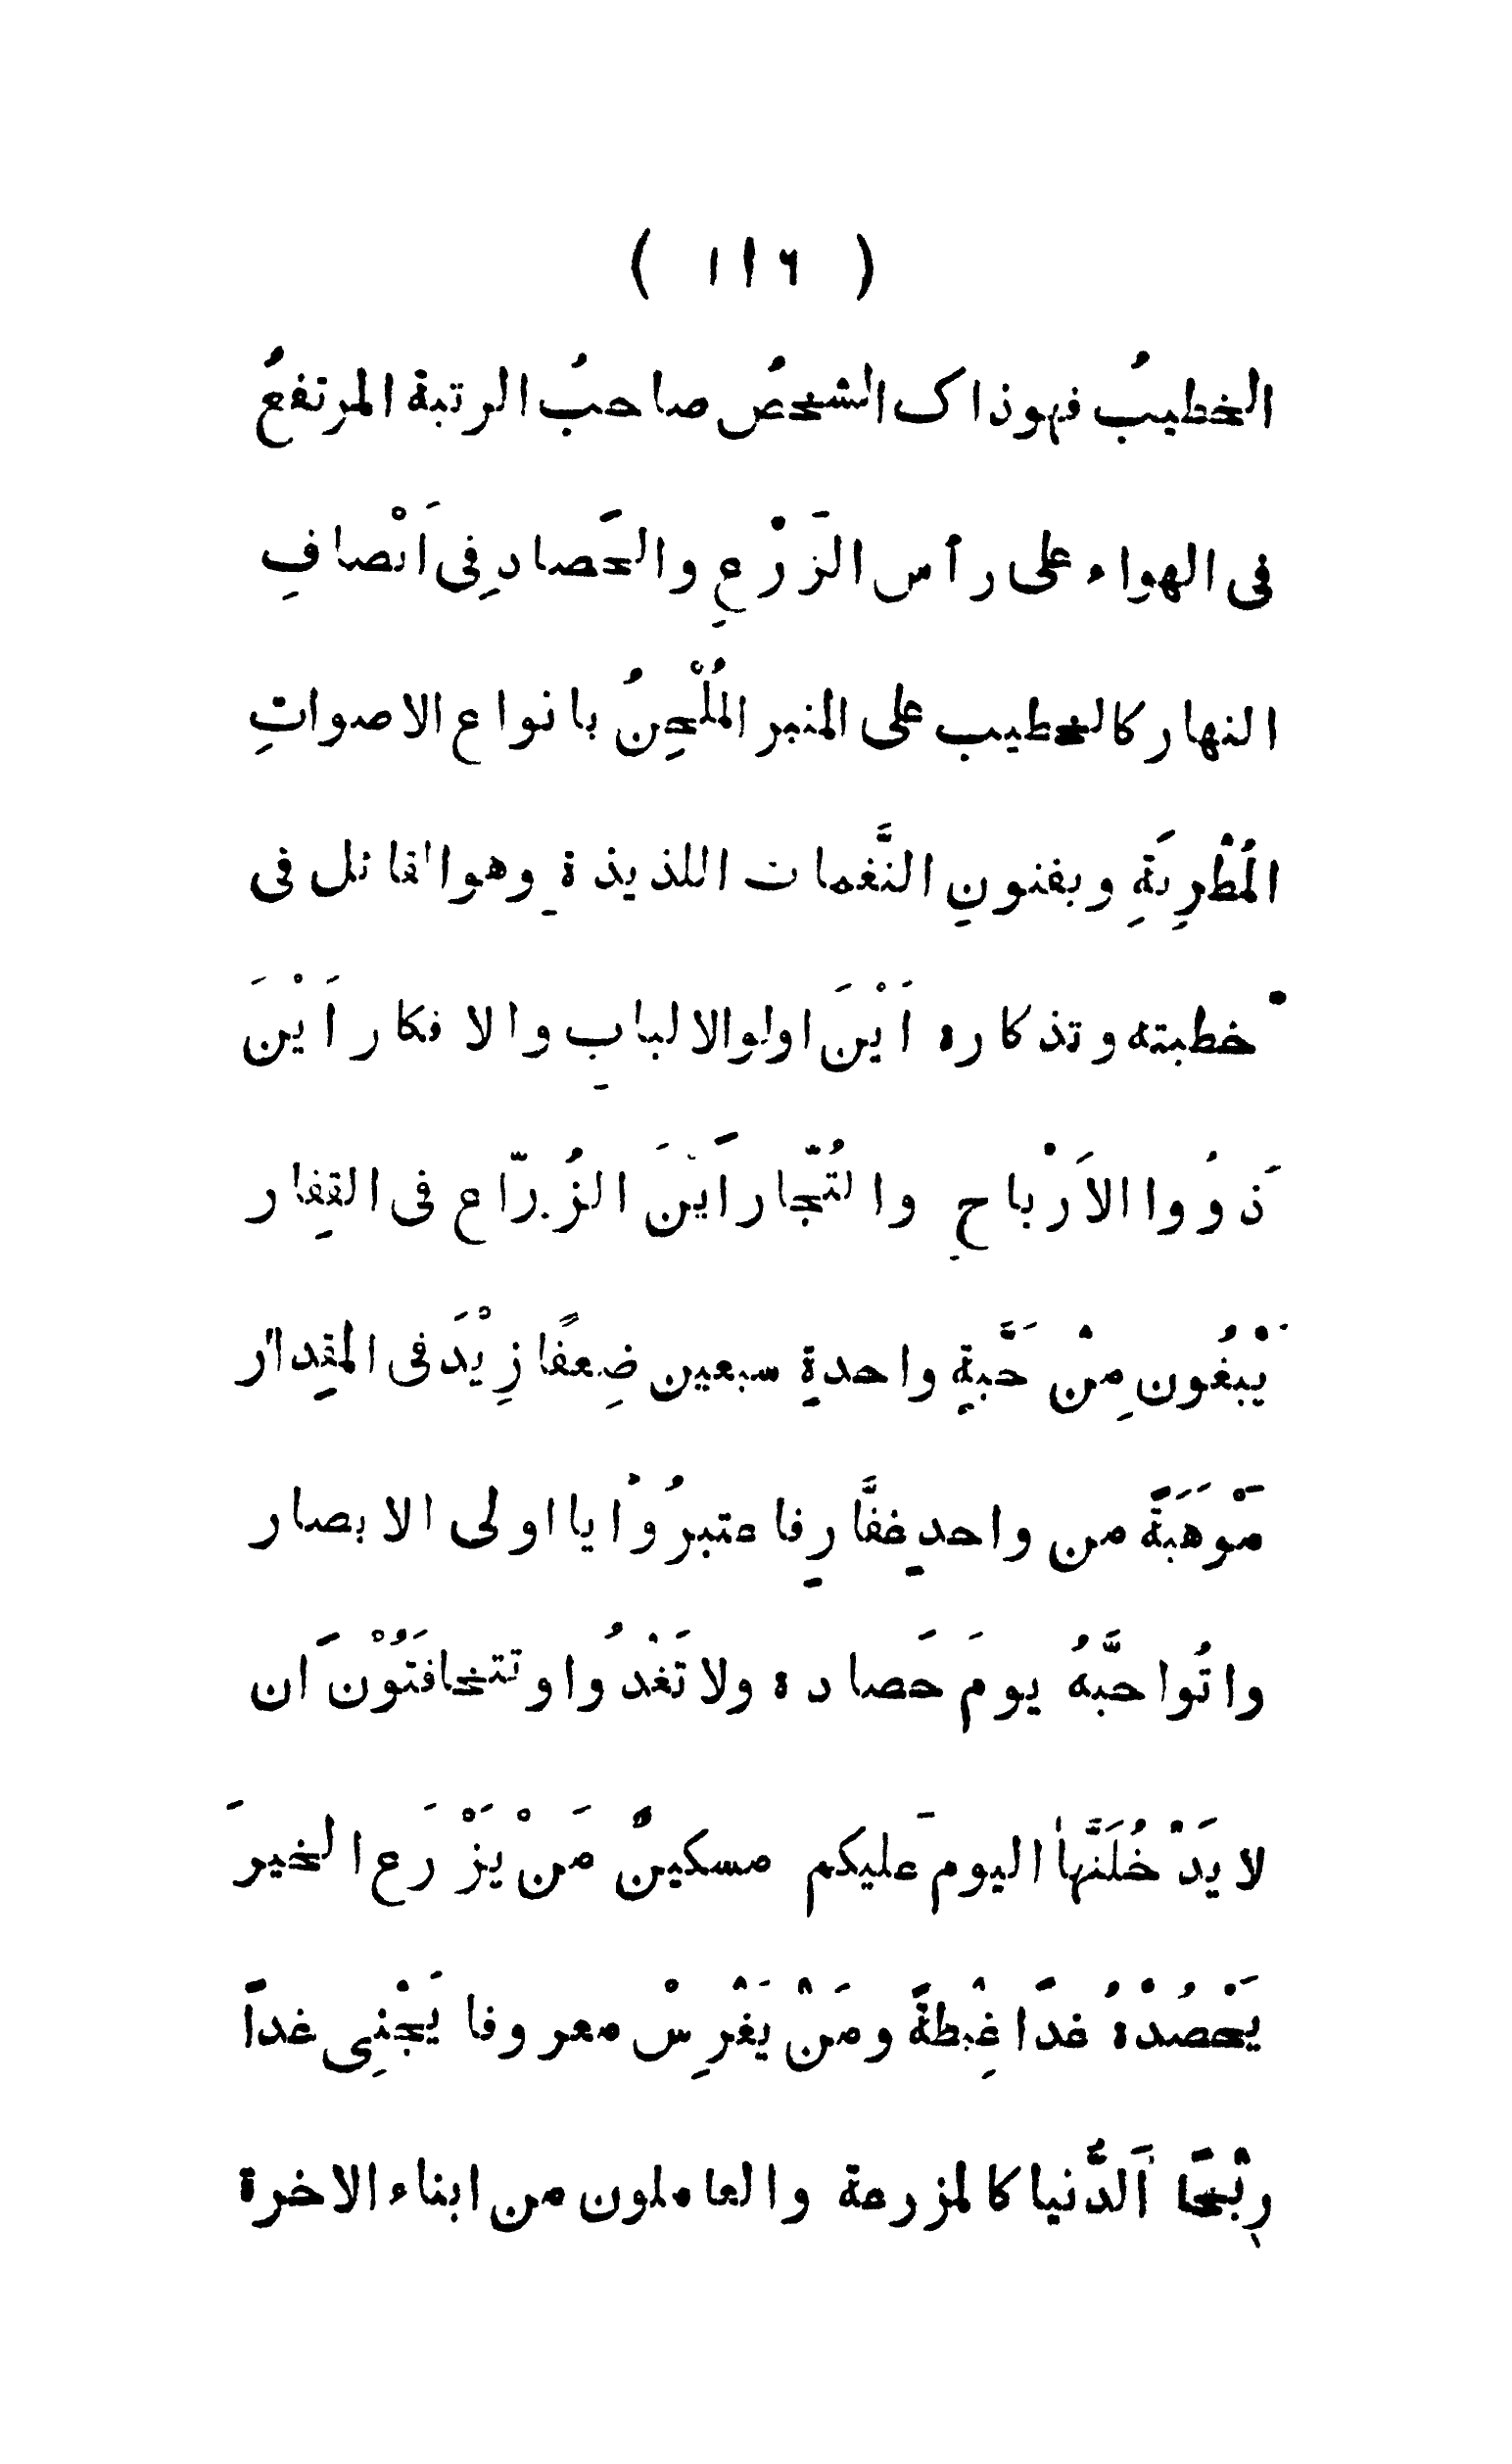 ( ١١٦ )
الخطيبُ فهوذاک الشخصُ صاحبُ الرتبة المرتفعُ
فى الهواء على رأس الزَرْعِ والحَصادِ فِى اَنْصافِ
النهار کالخطيب على المنبر المُلْحِنُ بانواع الاصواتِ
المُطْرِبَةِ وبفنونِ النَّغمات اللذيذةِ وهوالقائل فى
خطبته وتذکاره اَيْنَ اولوالالبابِ والافکار اَيْنَ
ذَوُوا الاَرْباحِ والتُجّار اَيْنَ الزُرّاع فى القِفار
يَبْغُون مِنْ حَبَّةٍ واحدةٍ سبعين ضِعفًا زِيْدَ فى المقِدار
مَوْهَبَةً من واحدٍ غفَّارٍ فاعتبرُوْا يا اولى الابصار
واتُوا حبَّهُ يومَ حَصاده ولا تَغْدُوا و تتخافَتُوْنَ ان
لا يَدْخُلَنَّها اليومَ عليکم مسکينٌ مَنْ يَزْرَع الخيرَ
يَحْصُدْهُ غدًا غِبْطةً ومَنْ يَغْرِسْ معروفا يَجْنِى غداً
رِبْحًا اَلدُّنيا کالمزرعة والعاملون من ابناء الاخرة